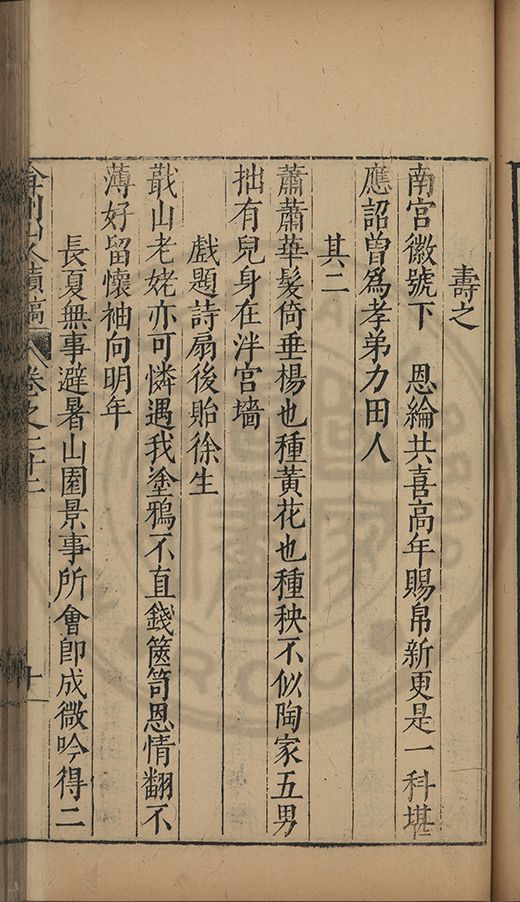 壽之
南宫徽號下　恩綸共喜高年賜帛新更是一科堪
應詔曾爲孝弟力田人
其二
蕭蕭華髪倚垂楊也種黄花也種秧不似陶家五男
拙有兒身在泮宫墻
戲題詩扇後貽徐生
蕺山老姥亦可憐遇我塗鴉不直錢篋笥恩情翻不
薄好留懷袖向明年
長夏無事避暑山園景事所會卽成微吟得二
弇州山人續稿　卷之二十二
十